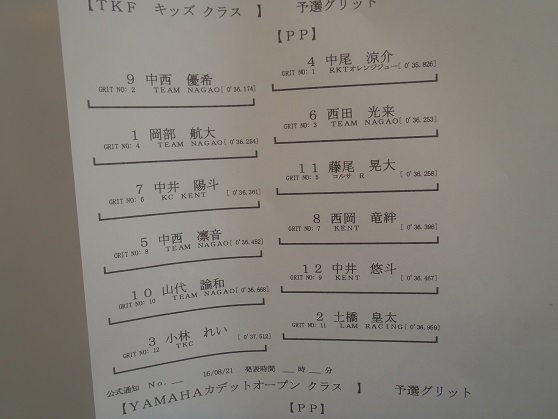 【TKF キッズ クラス 】 予選グリット
【PP】
4 中尾 涼介
GRIT NO: 1 RKTオレンジジュー[ 0'35.826]
9 中西 優希
GRIT NO: 2 TEAM NAGAO[ 0'36.174]
6 西田 光来
GRIT NO: 3 TEAM NAGAO[ 0'36.253]
1 岡部 航大
GRIT NO: 4 TEAM NAGAO[ 0'36.254]
11 藤尾 晃大
GRIT NO: 5 コルサ R [ 0'36.258]
7 中井 陽斗
GRIT NO: 6 KC KENT [ 0'36.361]
8 西岡 竜絆
GRIT NO: 7 KENT [ 0'36.396]
5 中西 凛音
GRIT NO: 8 TEAM NAGAO[ 0'36.452]
12 中井 悠斗
GRIT NO: 9 KENT [ 0'36.467]
10 山代 諭和
GRIT NO: 10 TEAM NAGAO[ 0'36.668]
2 土橋 皇太
GRIT NO: 11 LAM RACING[ 0'36.959]
3 小林 れい
GRIT NO: 12 TKC [ 0'37.512]
公式通知 No. __ 16/08/21 発表時間 __ 時 __ 分
【YAMAHAカデットオープン クラス 】 予選グリット
【PP】